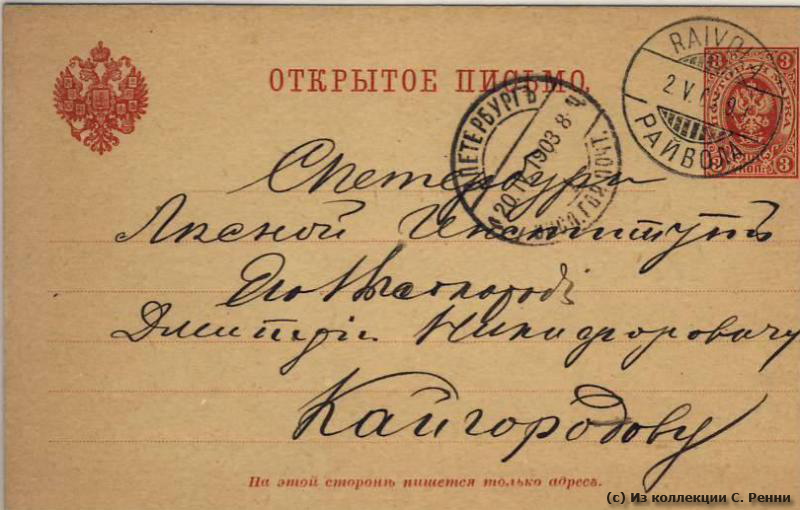 ОТКРЫТОЕ ПИСЬМО.
RAIVOLA
2.V.
РАЙВОЛА
3 3
ПОЧТОВАЯ МАРКА
3
ПЕТЕРБУРГЪ
20.IV.1903 8
ГОР. ПОЧТ.
СПетербургъ
Лѣсной Институтъ
Его Высокород.
Дмитрію Никифоровичу
Кайгородову
На этой сторонѣ пишется только адресъ.
(c) Из коллекции С. Ренни